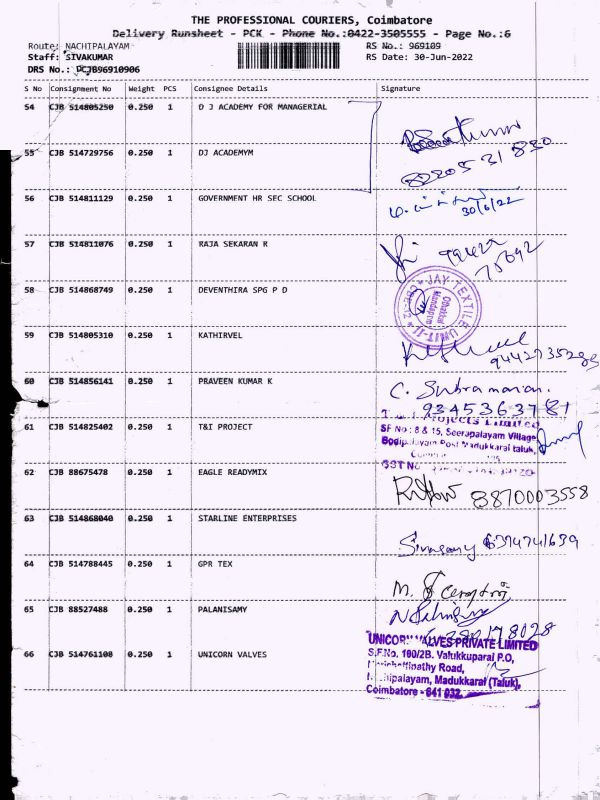 THE PROFESSIONAL COURIERS, Coimbatore
Delivery Runsheet - PCK - Phone No.:0422-3505555 - Page No.:6
Route: NACHIPALAYAM RS No.: 969109
Staff: SIVAKUMAR RS Date: 30-Jun-2022
DRS No.: PCJB96910906
S No Consignment No Weight PCS Consignee Details Signature
54 CJB 514805250 0.250 1 D J ACADEMY FOR MANAGERIAL
55 CJB 514729756 0.250 1 DJ ACADEMYM
56 CJB 514811129 0.250 1 GOVERNMENT HR SEC SCHOOL
30/6/22
57 CJB 514811076 0.250 1 RAJA SEKARAN R
75692
58 CJB 514868749 0.250 1 DEVENTHIRA SPG P D
JAY TEXTILE UNIT-II
59 CJB 514805310 0.250 1 KATHIRVEL
60 CJB 514856141 0.250 1 PRAVEEN KUMAR K C. Subramanian.
9345363781
61 CJB 514825402 0.250 1 T&I PROJECT
Projects Limited
SF No : 8 & 15, Seerapalayam Village
Bodipalayam Post Madukkarai taluk,
GST No
62 CJB 88675478 0.250 1 EAGLE READYMIX
8870003558
63 CJB 514868040 0.250 1 STARLINE ENTERPRISES
64 CJB 514788445 0.250 1 GPR TEX
65 CJB 88527488 0.250 1 PALANISAMY
66 CJB 514761108 0.250 1 UNICORN VALVES
UNICORN VALVES PRIVATE LIMITED
S.F.No. 100/2B. Valukkuparai P.O,
Road,
Madukkarai (Taluk),
Coimbatore - 641 032.